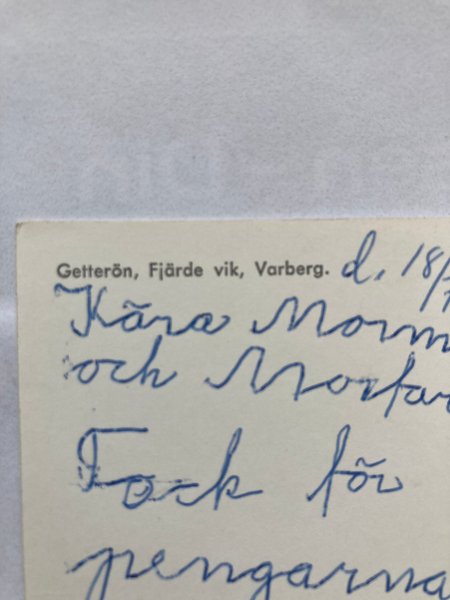 Getterön, Fjärde vik, Varberg.
d. 18/7
Kära Morm
och Morfar
Tack för
pengarna